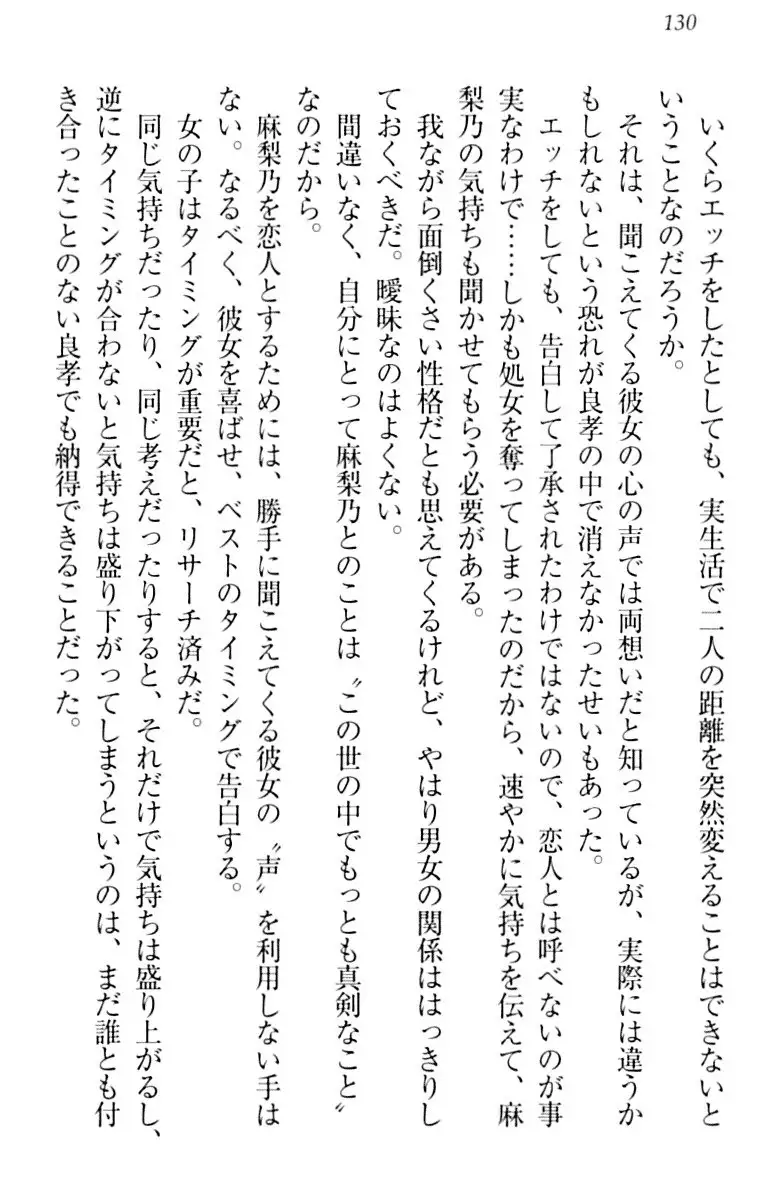 130
いくらエッチをしたとしても、実生活で二人の距離を突然変えることはできないと
いうことなのだろうか。
それは、聞こえてくる彼女の心の声では両想いだと知っているが、実際には違うか
もしれないという恐れが良孝の中で消えなかったせいもあった。
エッチをしても、告白して了承されたわけではないので、恋人とは呼べないのが事
実なわけで……しかも処女を奪ってしまったのだから、速やかに気持ちを伝えて、麻
梨乃の気持ちも聞かせてもらう必要がある。
我ながら面倒くさい性格だとも思えてくるけれど、やはり男女の関係ははっきりし
ておくべきだ。曖昧なのはよくない。
間違いなく、自分にとって麻梨乃とのことは〝この世の中でもっとも真剣なこと〟
なのだから。
麻梨乃を恋人とするためには、勝手に聞こえてくる彼女の〝声〟を利用しない手は
ない。なるべく、彼女を喜ばせ、ベストのタイミングで告白する。
女の子はタイミングが重要だと、リサーチ済みだ。
同じ気持ちだったり、同じ考えだったりすると、それだけで気持ちは盛り上がるし、
逆にタイミングが合わないと気持ちは盛り下がってしまうというのは、まだ誰とも付
き合ったことのない良孝でも納得できることだった。